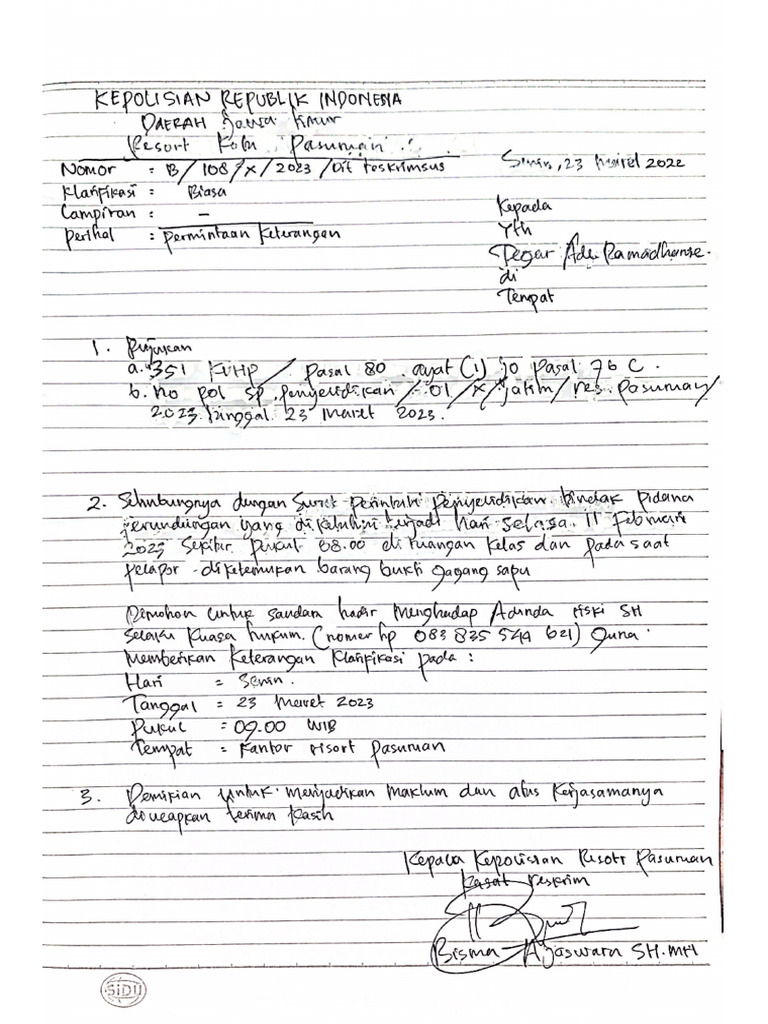 KEPOLISIAN REPUBLIK INDONESIA
DAERAH Jawa timur
Resort Kota Pasuruan
Nomor : B/108/X/2023/Dit reskrimsus
Senin, 23 Maret 2022
Klarifikasi : Biasa
Lampiran : -
Perihal : Permintaan Keterangan
Kepada
Yth
Tegar Ade Ramadhanse.
di
Tempat
1. Rujukan
a. 351 KUHP / pasal 80 ayat (1) jo pasal 76 C.
b. no pol sp. penyelidikan / 01 / X / jatim / res. pasuruan /
2023 tanggal 23 maret 2023.
2. Sehubungnya dengan Surat Perintah Penyelidikan tindak Pidana
Perundungan yang diketahui terjadi hari selasa 11 Februari
2023 Sekitar Pukul 08.00 di ruangan kelas dan pada saat
pelapor diketemukan barang bukti gagang sapu
Dimohon untuk saudara hadir Menghadap Adinda riski SH
selaku Kuasa hukum. (nomer hp 083 835 544 621) guna
Memberikan Keterangan Klarifikasi pada :
Hari = Senin.
Tanggal = 23 Maret 2023
Pukul = 09.00 WIB
Tempat = Kantor risort Pasuruan
3. Demikian untuk menjadikan Maklum dan atas Kerjasamanya
diucapkan terima Kasih
Kepala Kepolisian Resort Pasuruan
Kasat reskrim
Bisma Ajaswara SH.MH
SiDU